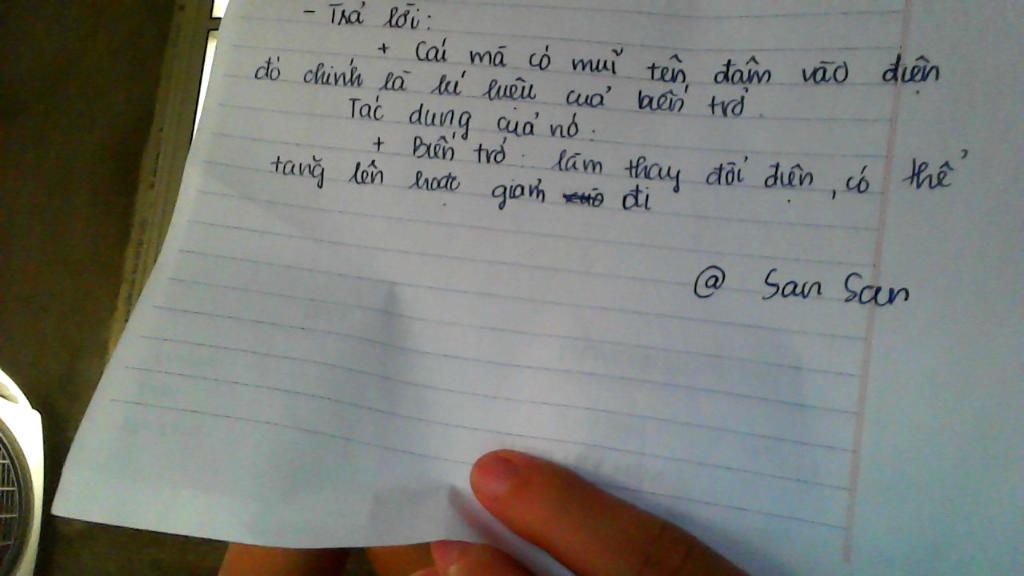 - Trả lời:
+ Cái mà có mũi tên đâm vào điện
đó chính là kí hiệu của biến trở.
Tác dụng của nó:
+ Biến trở: làm thay đổi điện, có thể
tăng lên hoặc giảm đi
@ San San